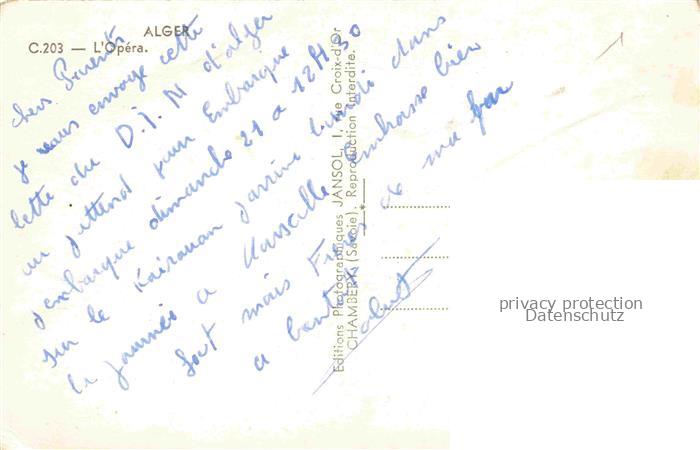 ALGER
C.203 — L'Opéra.
chers Parents
je vous envoye cette
lette du D.I.M d'alger
au j'attend pour Embarque
j'embarque dimanche 21 a 12H30
sur le Kairouan j'arrive lundi dans
la journée a Marseille Embrasse bien
tout mais Frères de ma par
a bientot
Editions Photographiques JANSOL, 1, rue Croix-d'Or
CHAMBERY (Savoie). Reproduction Interdite.
privacy protection
Datenschutz